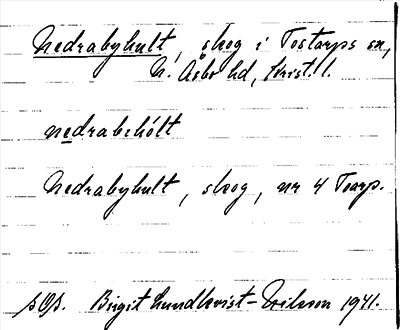 Nedrabyhult, skog i Tostarps sn,
N. Åsbo hd, Krist. l.
nedrabehölt
Nedrabyhult, skog, nr 4 Toarp.
SOS. Birgit Lundkvist-Erikson 1941.